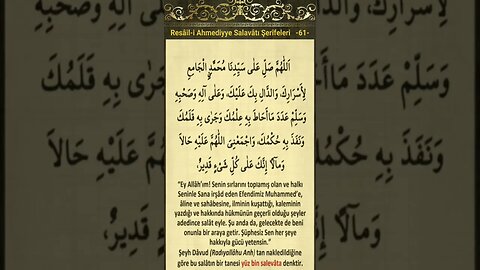 Resâil-i Ahmediyye Salavâtı Şerîfeleri -61-
اَللّٰهُمَّ صَلِّ عَلٰى سَيِّدِنَا مُحَمَّدٍ الْجَامِعِ
لِأَسْرَارِكَ، وَالدَّالِ بِكَ عَلَيْكَ، وَعَلٰى آلِهِ وَصَحْبِهِ
وَسَلِّمْ عَدَدَ مَاأَحَاطَ بِهِ عِلْمُكَ وَجَرٰى بِهِ قَلَمُكَ
وَنَفَذَ بِهِ حُكْمُكَ، وَاجْمَعْنِي اللّٰهُمَّ عَلَيْهِ حَالاً
وَمَآلاً إِنَّكَ عَلٰى كُلِّ شَيْءٍ قَدِيرٌ،
"Ey Allâh'ım! Senin sırlarını toplamış olan ve halkı
Seninle Sana irşâd eden Efendimiz Muhammed'e,
âline ve sahâbesine, ilminin kuşattığı, kaleminin
yazdığı ve hakkında hükmünün geçerli olduğu şeyler
adedince salât eyle. Şu anda da, gelecekte de beni
onunla bir araya getir. Şüphesiz Sen her şeye
hakkıyla gücü yetensin."
Şeyh Dâvud (Radıyallâhu Anh) tan nakledildiğine
göre bu salâtın bir tanesi yüz bin salevâta denktir.